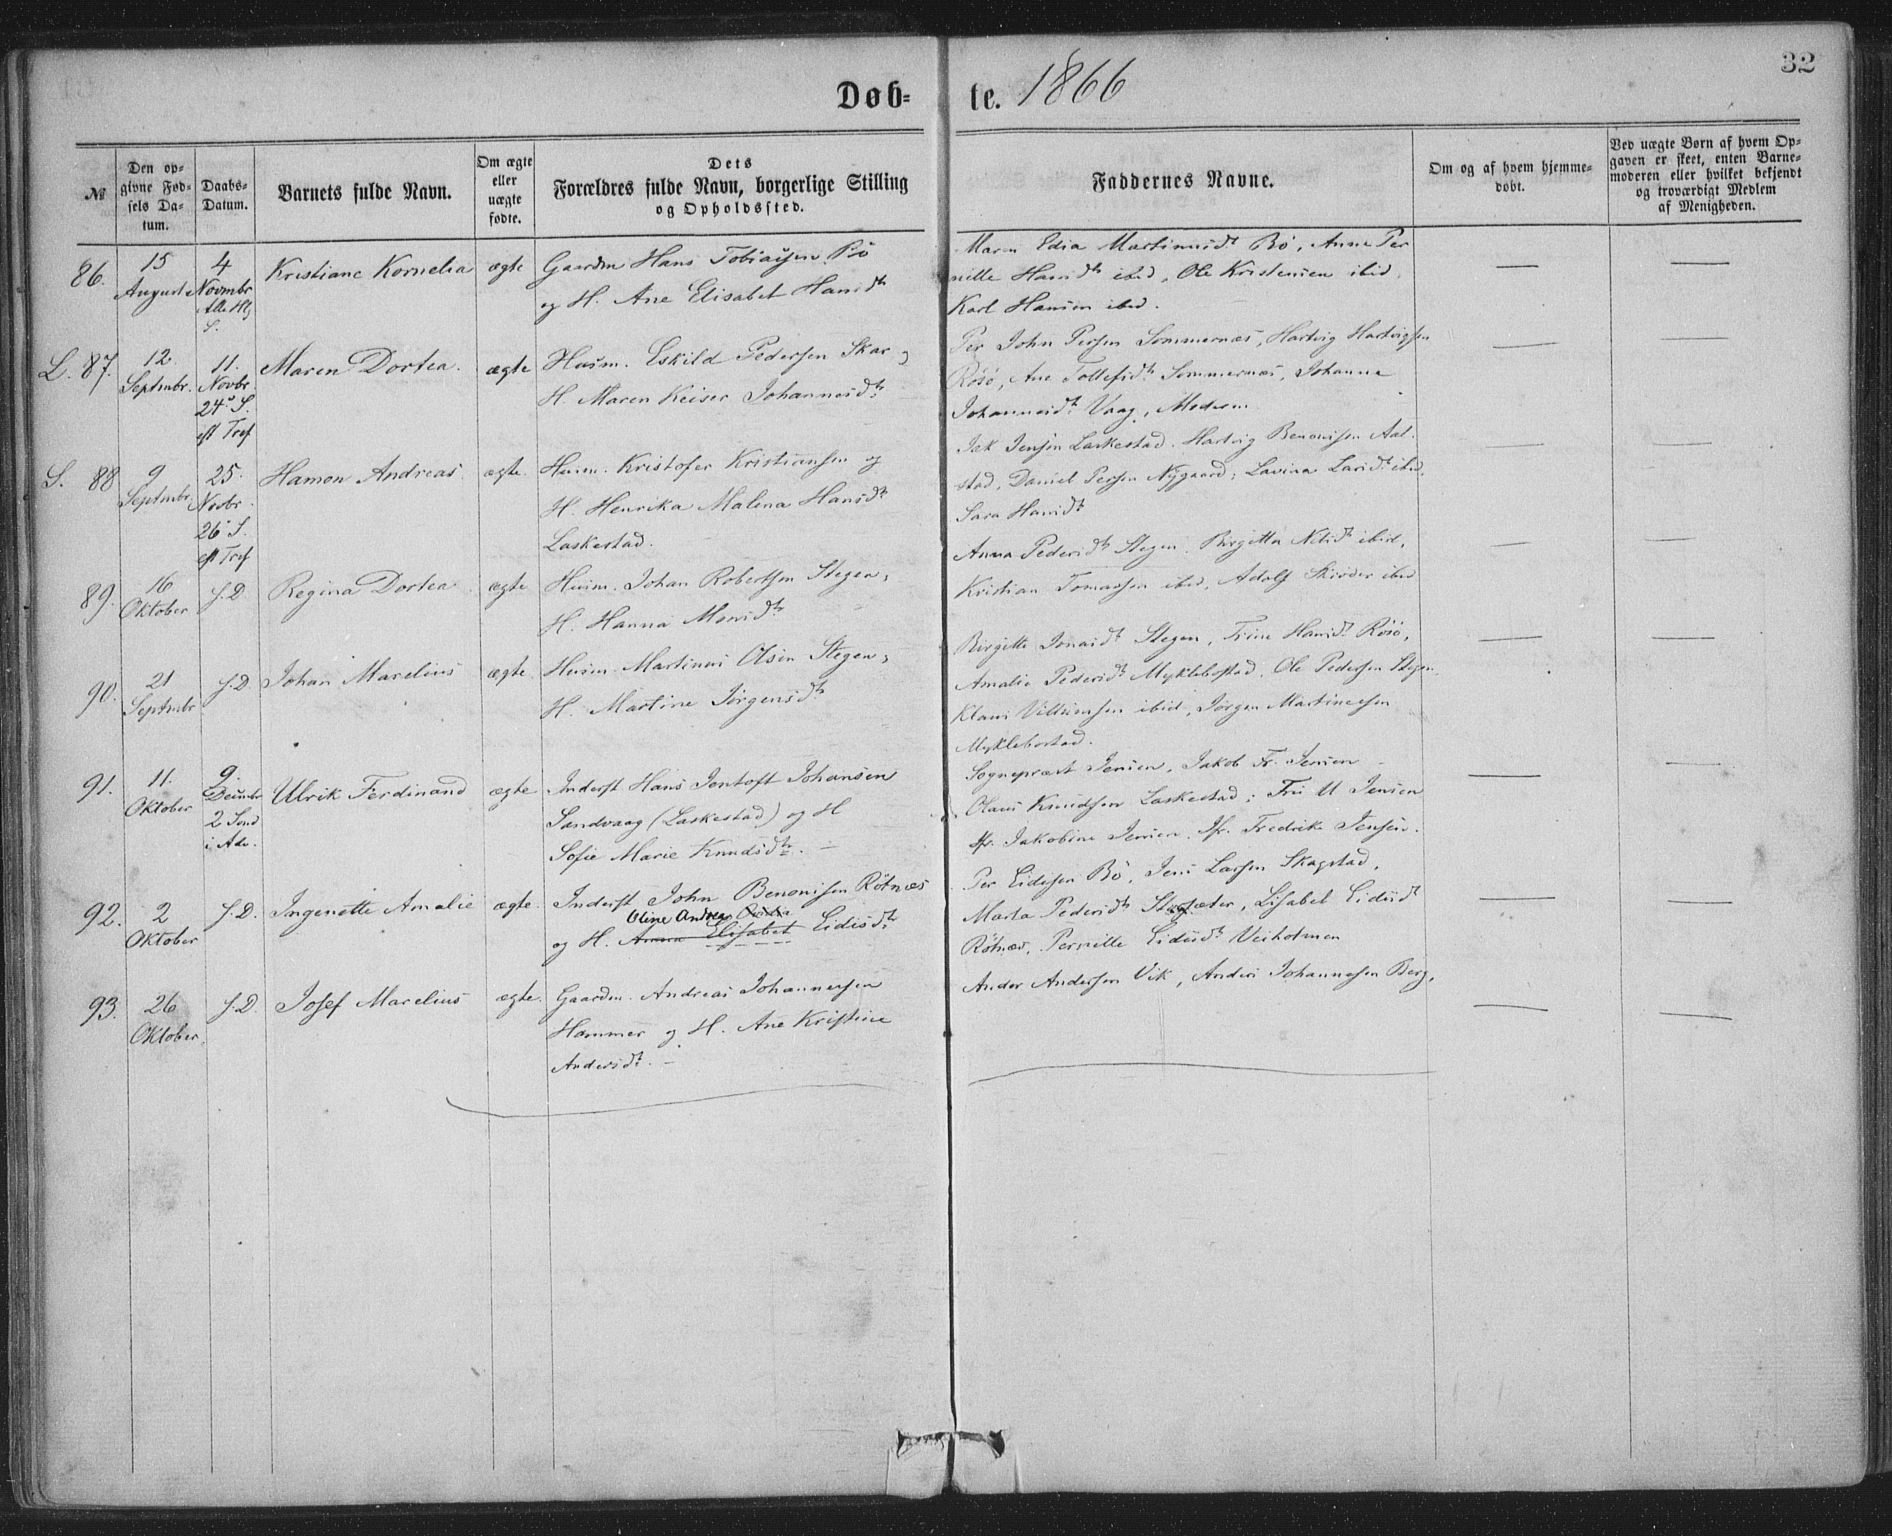 Døb-
te. 1866
32
№
Den op-
givne Fød-
sels Da-
tum.
Daabs-
Datum.
Barnets fulde Navn.
Om ægte
eller
uægte
fødte.
Dets
Forældres fulde Navn, borgerlige Stilling
og Opholdssted.
Faddernes Navne.
Om og af hvem hjemme-
døbt.
Ved uægte Børn af hvem Op-
gaven er skeet, enten Barne-
moderen eller hvilket bekjendt
og troværdigt Medlem
af Menigheden.
86.
15
August
4
Novmbr
Alle Hlg
S.
Kristiane Kornelia
ægte
Gaardm Hans Tobiassen Bø
og H. Ane Elisabet Hansdtr
Maren Edia Martinusdtr Bø, Anne Per
nille Hansdtr ibid, Ole Kristensen ibid,
Karl Hansen ibid.
L. 87.
12
Septmbr.
11.
Novbr.
24de S.
eft Tref
Maren Dortea.
ægte
Husm. Eskild Pedersen Skar og
H. Maren Keiser Johannesdtr
Per John Persen Sommernæs, Hartvig Hartvigsen
Røsø, Ane Tollefsdtr Sommernæs, Johanna
Johannesdtr Vaag, Moderen
S. 88
9
Septmbr
25.
Novbr.
26de S.
eft Tref
Hamon Andreas.
ægte.
Husm. Kristofer Kristiansen og
H. Henrika Malena Hansdtr
Laskestad.
Jak Jensen Laskestad. Hartvig Benonisen Aal-
stad, Daniel Persen Nygaard; Lavina Larsdtr ibid,
Sara Hansdtr
89.
16
Oktober
s.D.
Regina Dortea
ægte
Husm. Johan Robertsen Stegen,
H. Hanna Monsdtr
Anna Pedersdtr Stegen. Birgitta Nilsdtr ibid,
Kristian Tomassen ibid, Adolf Skrøder ibid
90.
21
Septmbr
s.D.
Johan Marelius
ægte
Husm. Martinus Olsen Stegen,
H. Martine Jørgensdtr
Birgitte Jonasdtr Stegen, Trine Hansdtr Røsø,
Amalie Pedersdtr Myklebostad, Ole Pedersen Stegen
Klaus Villumsen ibid, Jørgen Martinessen
Myklebostad.
91.
11.
Oktober
9.
Decmbr
2 Sønd
i Adv.
Ulrik Ferdinand
ægte
Inderst Hans Jentoft Johansen
Sandvaag (Laskestad) og H
Sofie Marie Knudsdtr. —
Sogneprest Jensen, Jakob Fr. Jensen
Olaus Knudsen Laskestad; Fru M Jensen
Jfr. Jakobine Jensen, Jfr. Fredrike Jensen.
92.
2
Oktober
s.D.
Ingenette Amalie
ægte.
Inderst John Benonisen Røtnæs
Oline Andrea
og H. Anna Elisabet Eidisdtr
Per Eidisen Bø, Jens Larsen Skagstad,
Marta Pedersdtr Storsæter, Lisabet Eidisdtr
Røtnæs, Pernille Eidisdtr Veiholmen
93.
26
Oktober.
s.D.
Josef Marelius
ægte.
Gaardm. Andreas Johannesen
Hammer og H. Ane Kristine
Andersdtr. —
Ander Andersen Vik, Anders Johannesen Berg,